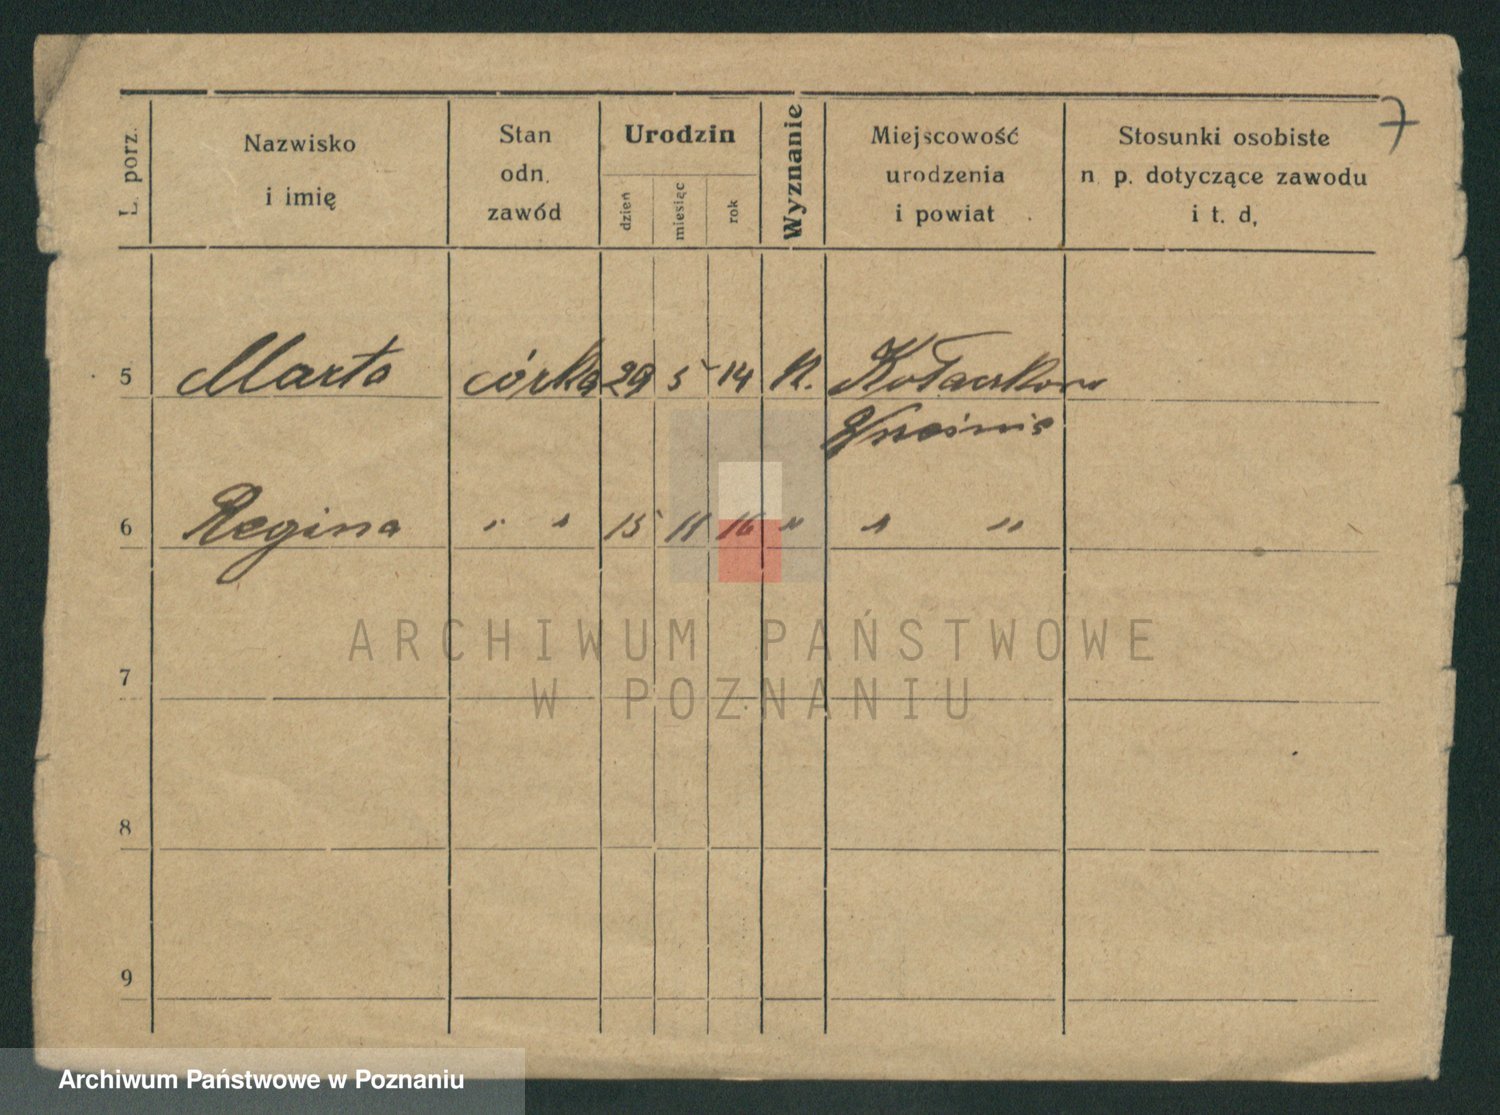 7
L. porz.
Nazwisko
i imię
Stan
odn.
zawód
Urodzin
dzień
miesiąc
rok
Wyznanie
Miejscowość
urodzenia
i powiat
Stosunki osobiste
n. p. dotyczące zawodu
i t. d,
5 Marta córka 29 5 14 k.
Września
6 Regina " " 15 11 16 " " "
7
8
9
ARCHIWUM PAŃSTWOWE
W POZNANIU
Archiwum Państwowe w Poznaniu